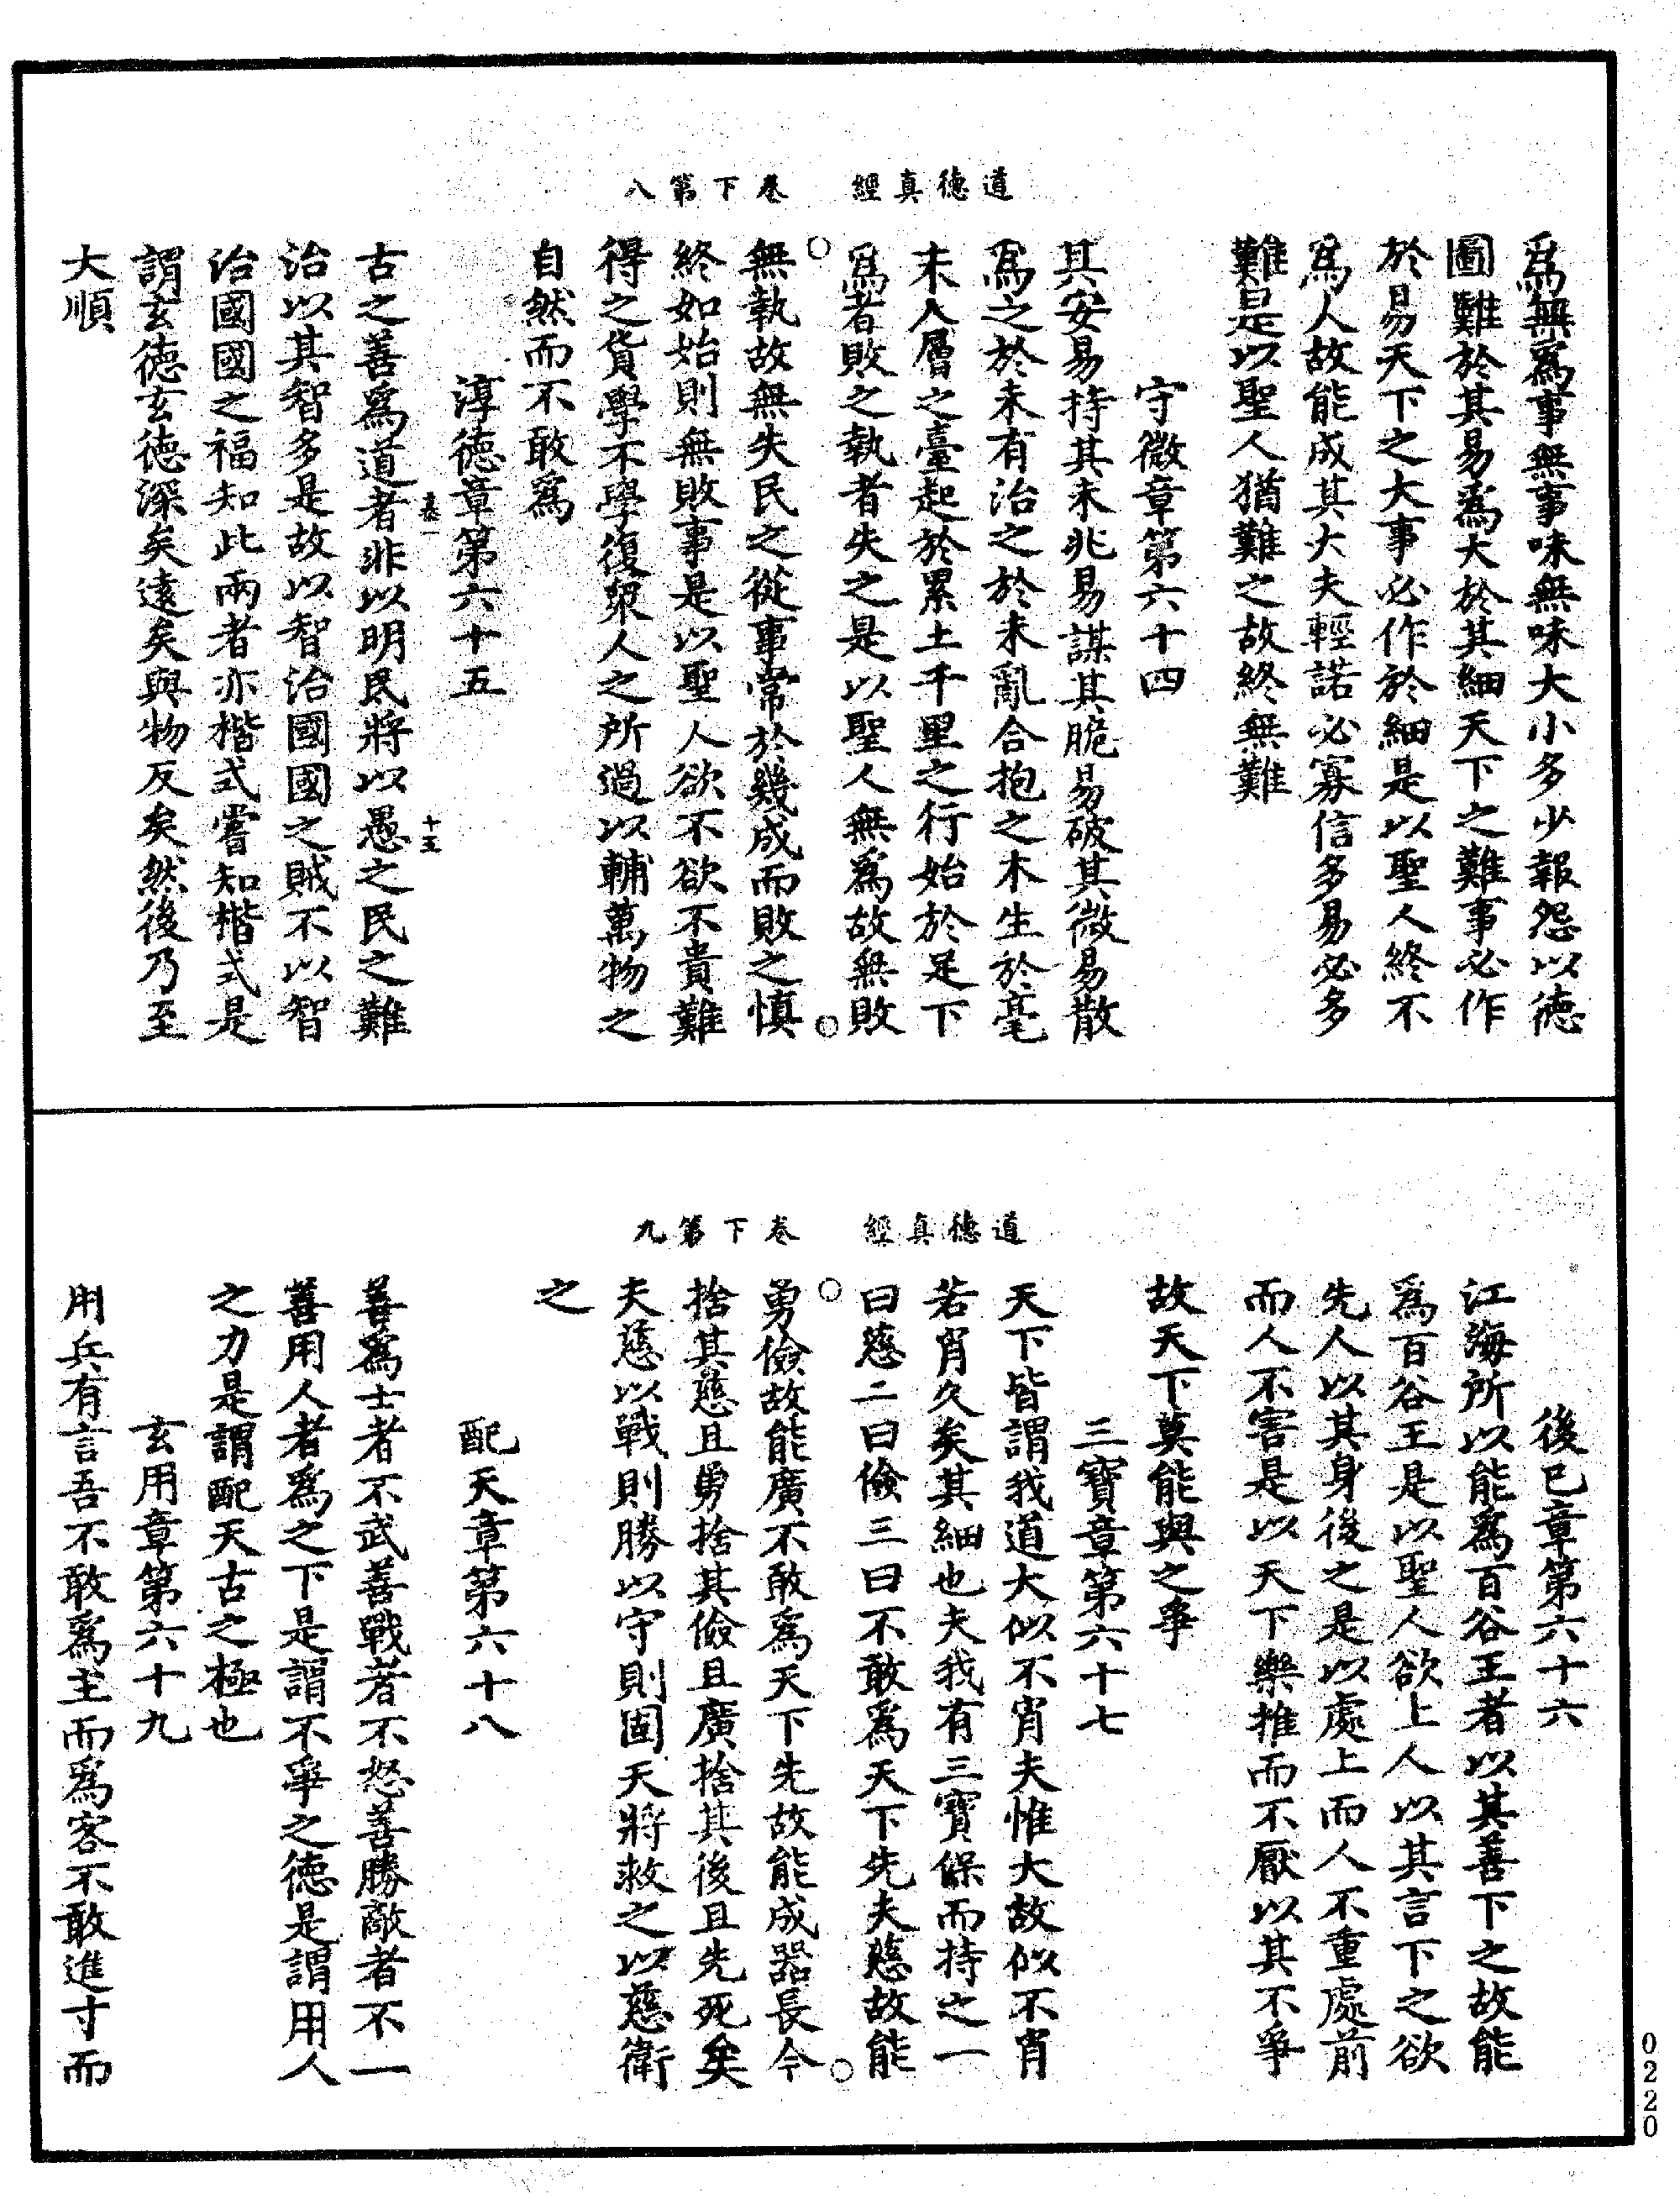 道德真經　卷下第八
爲無爲事無事味無味大小多少報怨以德
圖難於其易爲大於其細天下之難事必作
於易天下之大事必作於細是以聖人終不
爲人故能成其大夫輕諾必寡信多易必多
難是以聖人猶難之故終無難
守微章第六十四
其安易持其未兆易謀其脆易破其微易散
爲之於未有治之於未亂合抱之木生於毫
末人層之臺起於累土千里之行始於足下
爲者敗之執者失之是以聖人無爲故無敗
無執故無失民之從事常於幾成而敗之慎
終如始則無敗事是以聖人欲不欲不貴難
得之貨學不學復衆人之所過以輔萬物之
自然而不敢爲
淳德章第六十五
古之善爲道者非以明民將以愚之民之難
治以其智多是故以智治國國之賊不以智
治國國之福知此兩者亦楷式嘗知楷式是
謂玄德玄德深矣遠矣與物反矣然後乃至
大順
道德真經　卷下第九
後己章第六十六
江海所以能爲百谷王者以其善下之故能
爲百谷王是以聖人欲上人以其言下之欲
先人以其身後之是以處上而人不重處前
而人不害是以天下樂推而不厭以其不爭
故天下莫能與之爭
三寶章第六十七
天下皆謂我道大似不肖夫惟大故似不肖
若肖久矣其細也夫我有三寶保而持之一
曰慈二曰儉三曰不敢爲天下先夫慈故能
勇儉故能廣不敢爲天下先故能成器長今
捨其慈且勇捨其儉且廣捨其後且先死矣
夫慈以戰則勝以守則固天將救之以慈衛
之
配天章第六十八
善爲士者不武善戰者不怒善勝敵者不一
善用人者爲之下是謂不爭之德是謂用人
之力是謂配天古之極也
玄用章第六十九
用兵有言吾不敢爲主而爲客不敢進寸而
0220